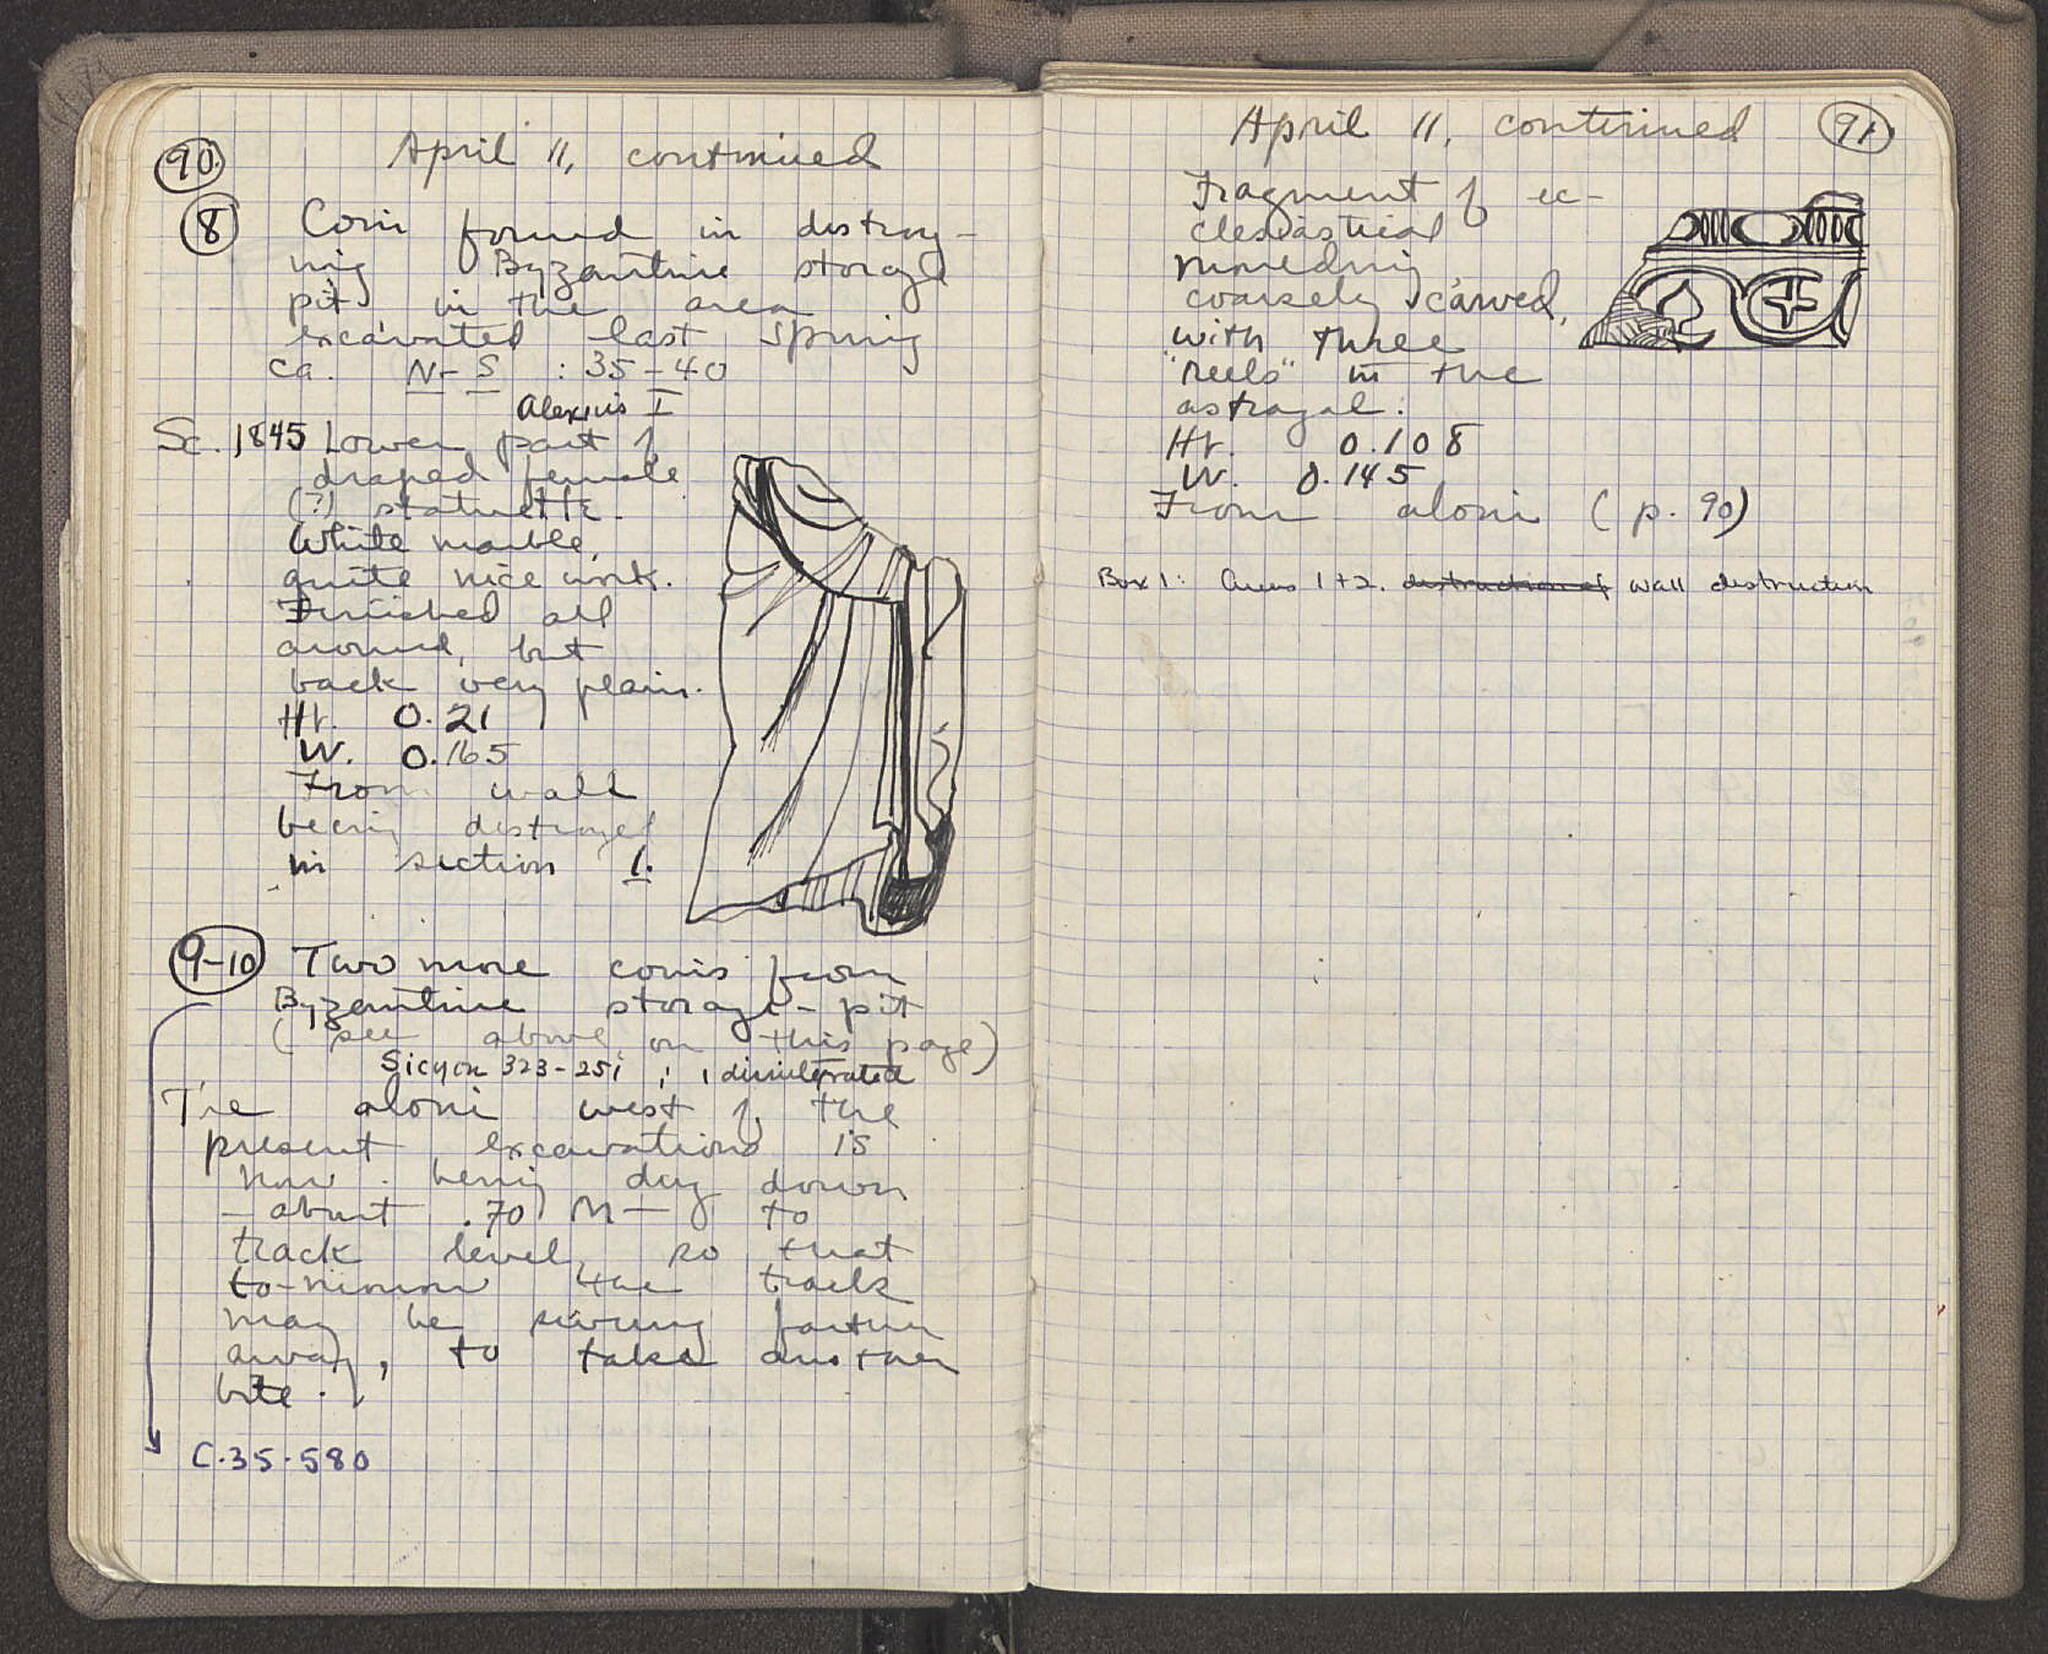 90
April 11, continued
8 Coin found in destroy-
ing Byzantine storage
pit in the area
excavated last spring
ca. N-S : 35-40
Alexius I
Sc. 1845 Lower part of
draped female
(?) statuette.
White marble,
quite nice work.
Finished all
around, but
back very plain.
Ht. 0.21
W. 0.165
From wall
being destroyed
in section I.
9-10 Two more coins from
Byzantine storage-pit
(see above on this page)
Sicyon 323-251; 1 disintegrated
The aloni west of the
present excavations is
now being dug down
- about .70 M - to
track level, so that
to-morrow the track
may be swung farther
away, to take another
bite.
C.35.580
April 11, continued 91
Fragment of ec-
clesiastical
coarsely carved,
with three
"reels" in the
astragal.
Ht. 0.108
W. 0.145
From aloni (p. 90)
Box 1: Areas 1+2. destruction of wall destruction